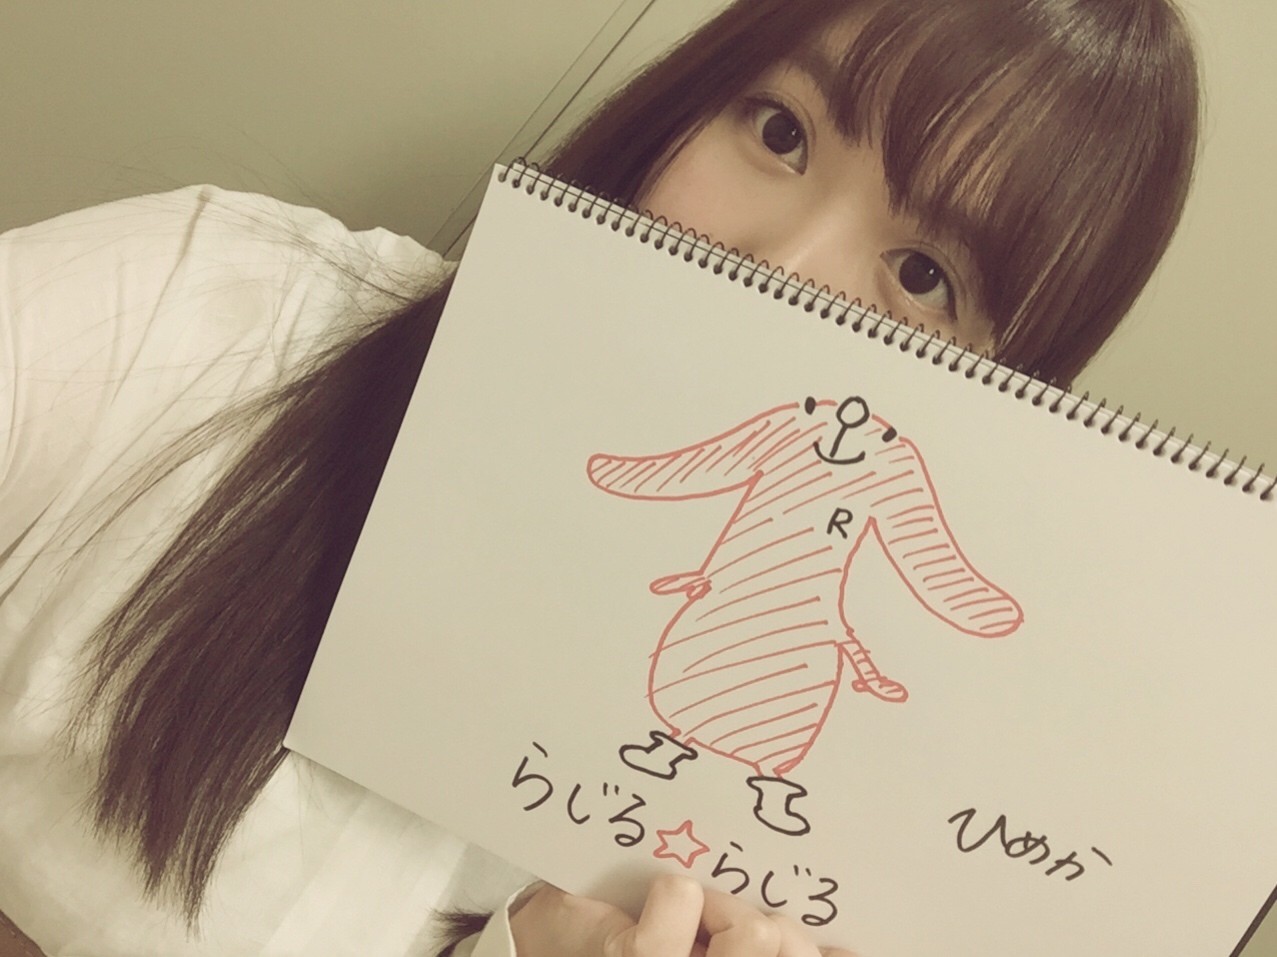 R
らじる☆らじる
ひめか